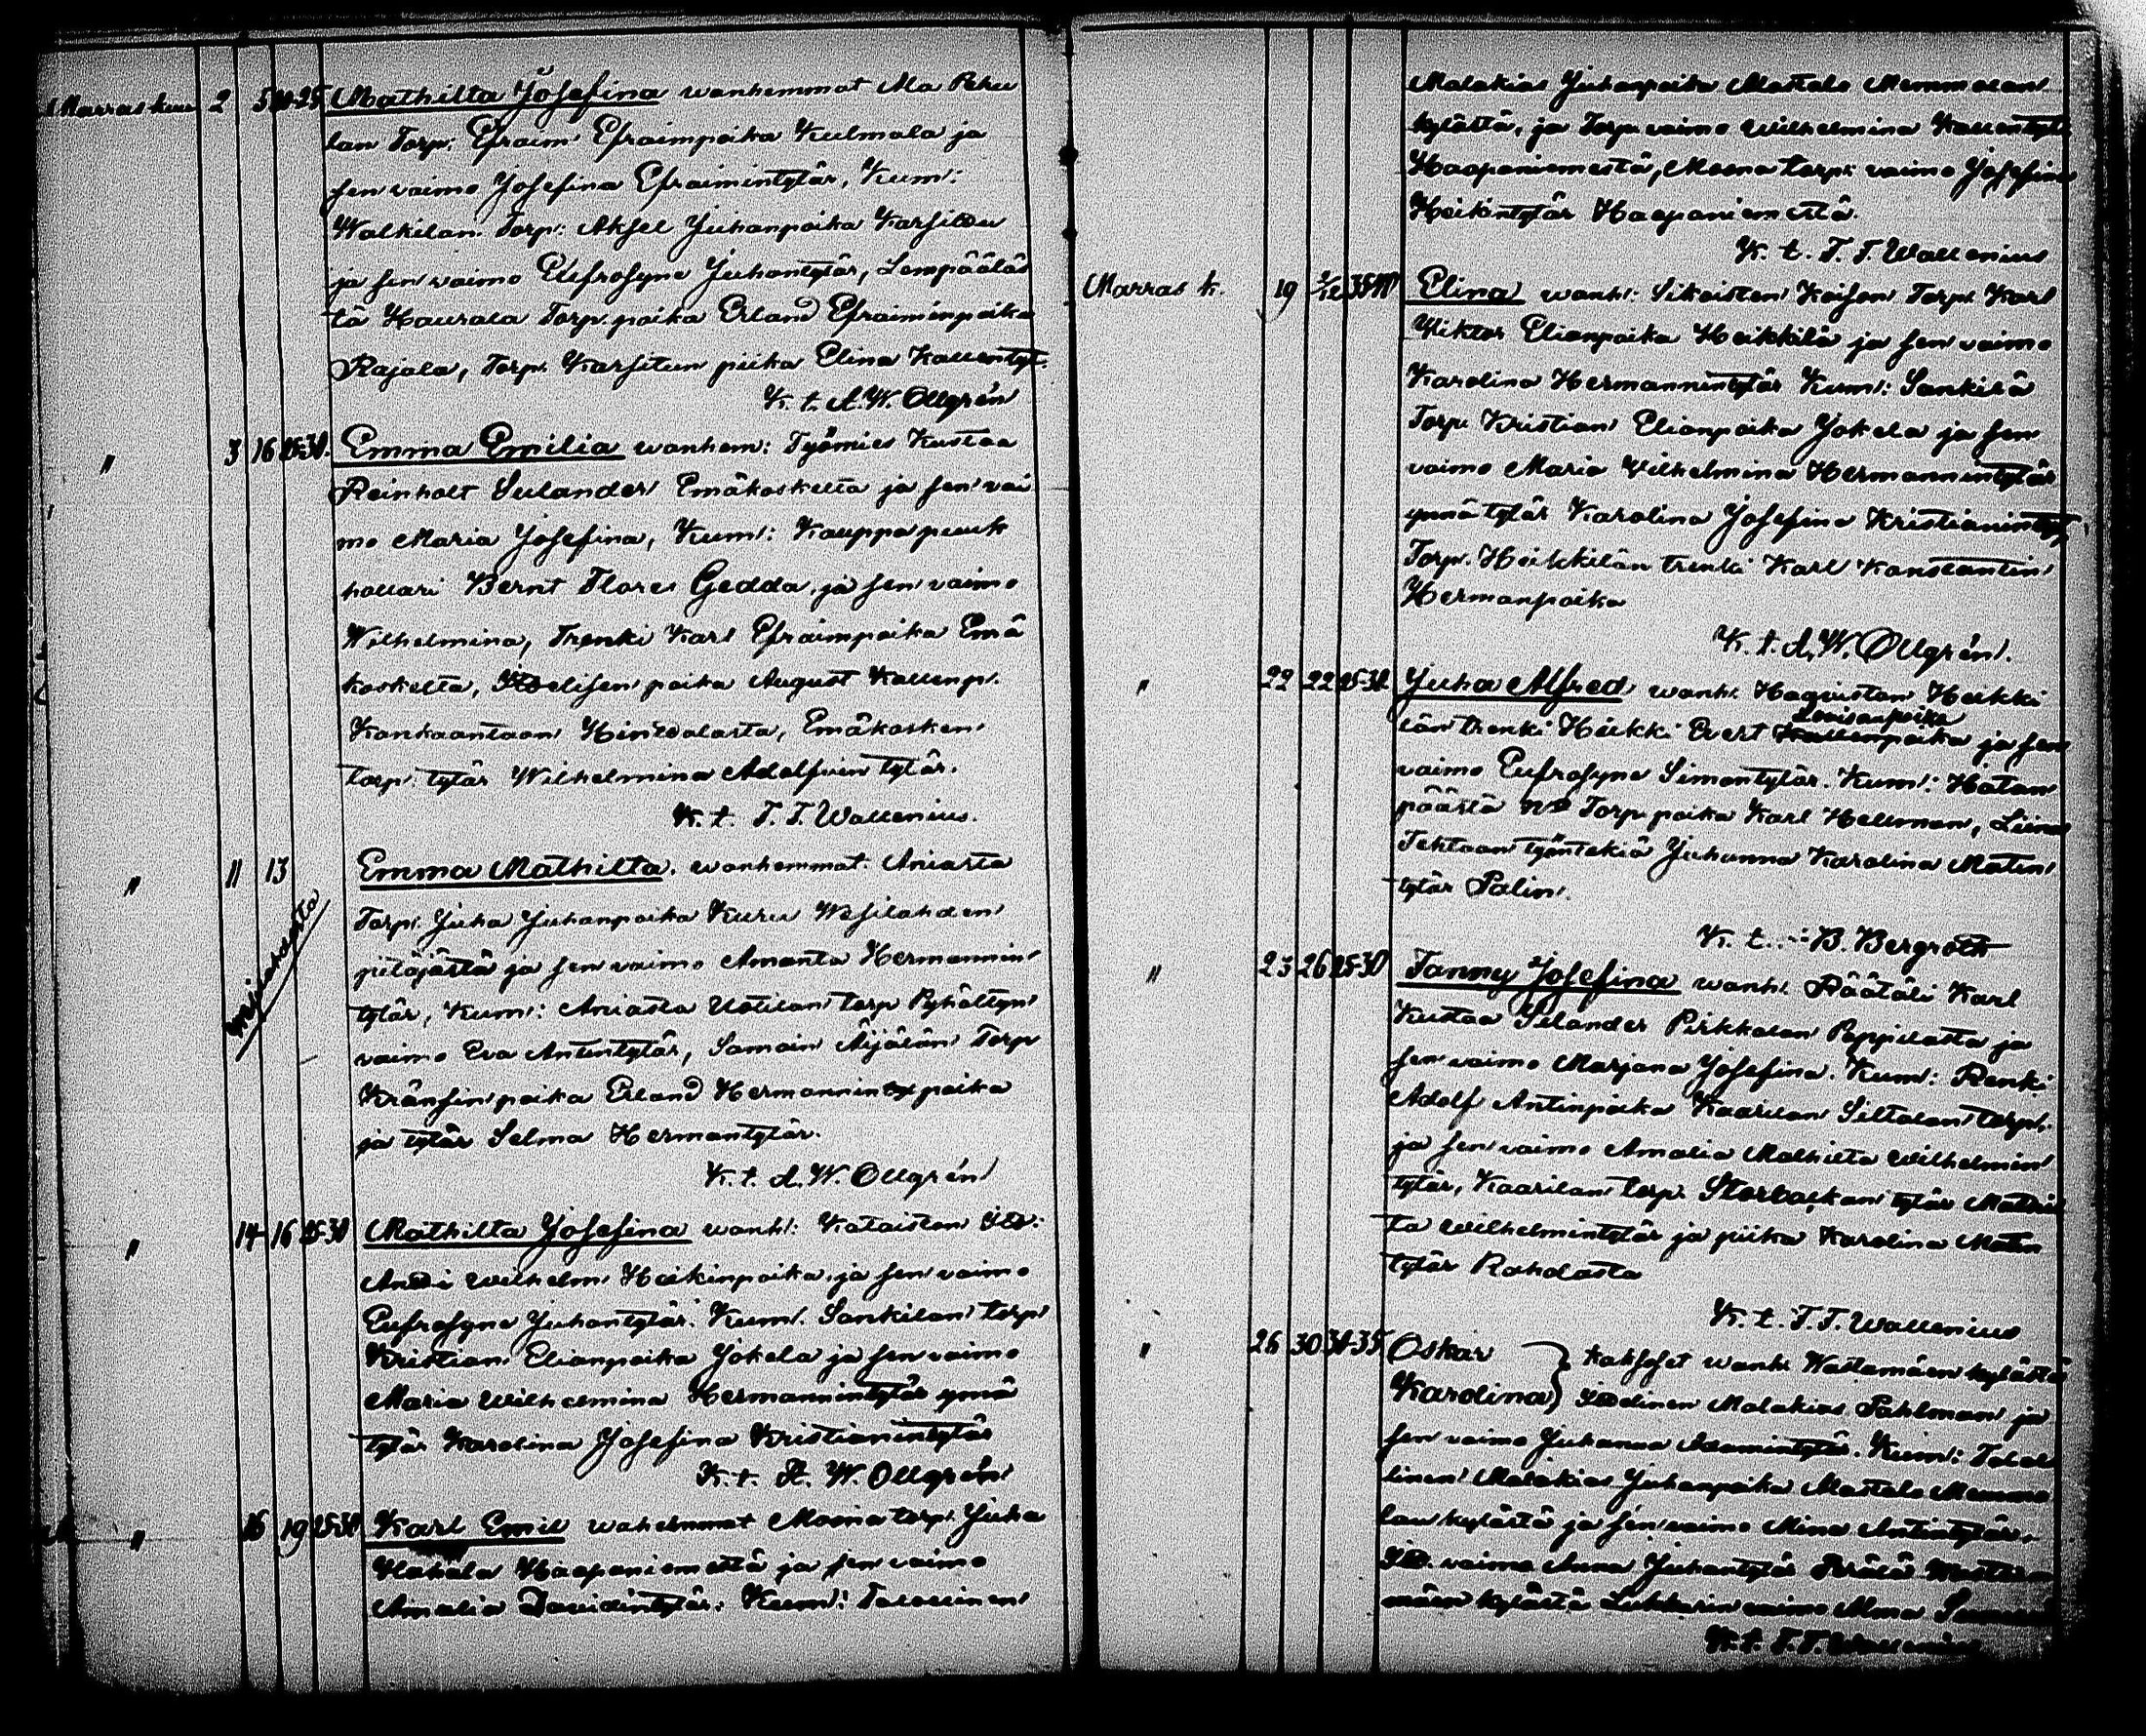 Marraskuu 2 5 20-25 Mathilta Josefina wanhemmat Ala Peku
lan Torp: Efraim Efraimpoika Kulmala ja
sen vaimo Josefina Efraimintytär, Kum:
Walkilan Torp: Aksel Juhanpoika Karsildu
ja sen vaimo Eufrosyne Juhantytär, Lempääläs
tä Haurala Torp. poika Erland Efraiminpoika
Rajala, Torp. Karsitun piika Elina Kallentyt.
K. t. A. W. Ollgrén
" 3 16 25-30. Emma Emilia wanhem: Työmies Kustaa
Reinholt Sulander Emäkoskelta ja sen vai
mo Maria Josefina, Kum: Kauppapuuk
hollari Bernt Flores Gedda, ja sen vaimo
Wilhelmina, Trenki Karl Efraimpoika Emä
koskelta, Itselisen poika August Kallenp.
Kankaantaan Hintalasta, Emäkosken
torp. tytär Wilhelmina Adolfiin tytär.
K. t. T. T. Wallenius.
" 11 13 Emma Mathilta. wanhemmat. Aniasta
Torp. Juha Juhanpoika Kuru Wesilahden
pitäjästä ja sen vaimo Amanta Hermannin
tytär, Kum: Aniasta Uotilan torp Pyhältyn
vaimo Eva Antintytär, Samain Äijälän Torp
Kränsin poika Erland Hermannin poika
ja tytär Selma Hermantytär.
K. t. A. W. Ollgrén
" 14 16 25-30 Mathilta Josefina wanh: Kataisten
Antti Wilhelm Heikinpoika ja sen vaimo
Eufrosyne Juhantytär. Kum. Sankilan torp
Kristian Elianpoika Jokela ja sen vaimo
Maria Wilhelmina Hermannintytär ynnä
tytär Karolina Josefina Kristianintytär
K. t. A. W. Ollgrén
" 16 19 25-30 Karl Emil wahemmat Moina torp. Juha
Hakala Haapaniemestä ja sen vaimo
Amalia Davidintytär. Kum: Talollinen
Malakias Juhanpoika Mattala Memmalan
kylästä, ja Torp. vaimo Wilhelmina Kallentyt
Haapaniemestä, Moena torp: vaimo Josefina
Heikintytär Haapaniemestä.
K. t. T. T. Wallenius
Marras k. 19 2/12 35-40 Elina wanh: Sikaisten Koison Torp. Karl
Wiktor Elianpoika Heikkilä ja sen vaimo
Karolina Hermannintytär Kum: Sankilä
Torp. Kristian Elianpoika Jokela ja sen
vaimo Maria Vilhelmina Hermannintytär
ynnä tytär Karolina Josefina Kristianintyt,
Torp. Heikkilän trenki Karl Konstantin
Hermanpoika
K. t. A. W. Ollgrén.
" 22 22 25-30 Juha Alfred wanh. Hagiustan Heikki
Lovisanpoika
län trenki Heikki Evert Kallenpoika ja sen
vaimo Eufrosyne Simontytär. Kum: Hatan
päästä Torp. poika Karl Hellman, Liina
Tehtaan työntekiä Juhanna Karolina Matin
tytär Palin.
K. t. B. Bergroth
" 23 26 25-30 Fanny Josefina wanh. Räätäli Karl
Kustaa Silander Pirkkalan Pappilasta ja
sen vaimo Marjana Josefina. Kum: Renki
Adolf Antinpoika Kaarilan Siltalan torp.
ja sen vaimo Amalia Mathilta Wilhelmin
tytär, Kaarilan torp. Storbackan tytär Mathil
ta Wilhelmintytär ja piika Karolina Matin
tytär Rahdasta
K. t. T. T. Wallenius
" 26 30 30-35 Oskar } kaksoset wanh. Wastamäen kylästä
Karolina } Itsellinen Malakias Pahlman ja
sen vaimo Juhanna Adamintytär. Kum: Talol
linen Malakias Juhanpoika Mattala Memma
lan kylästä ja sen vaimo Mina Antintytär,
vaimo Anna Juhantytär Perälä Wasta
mäen kylästä Lukkarin vaimo Alma
K. t. T. T. Wallenius